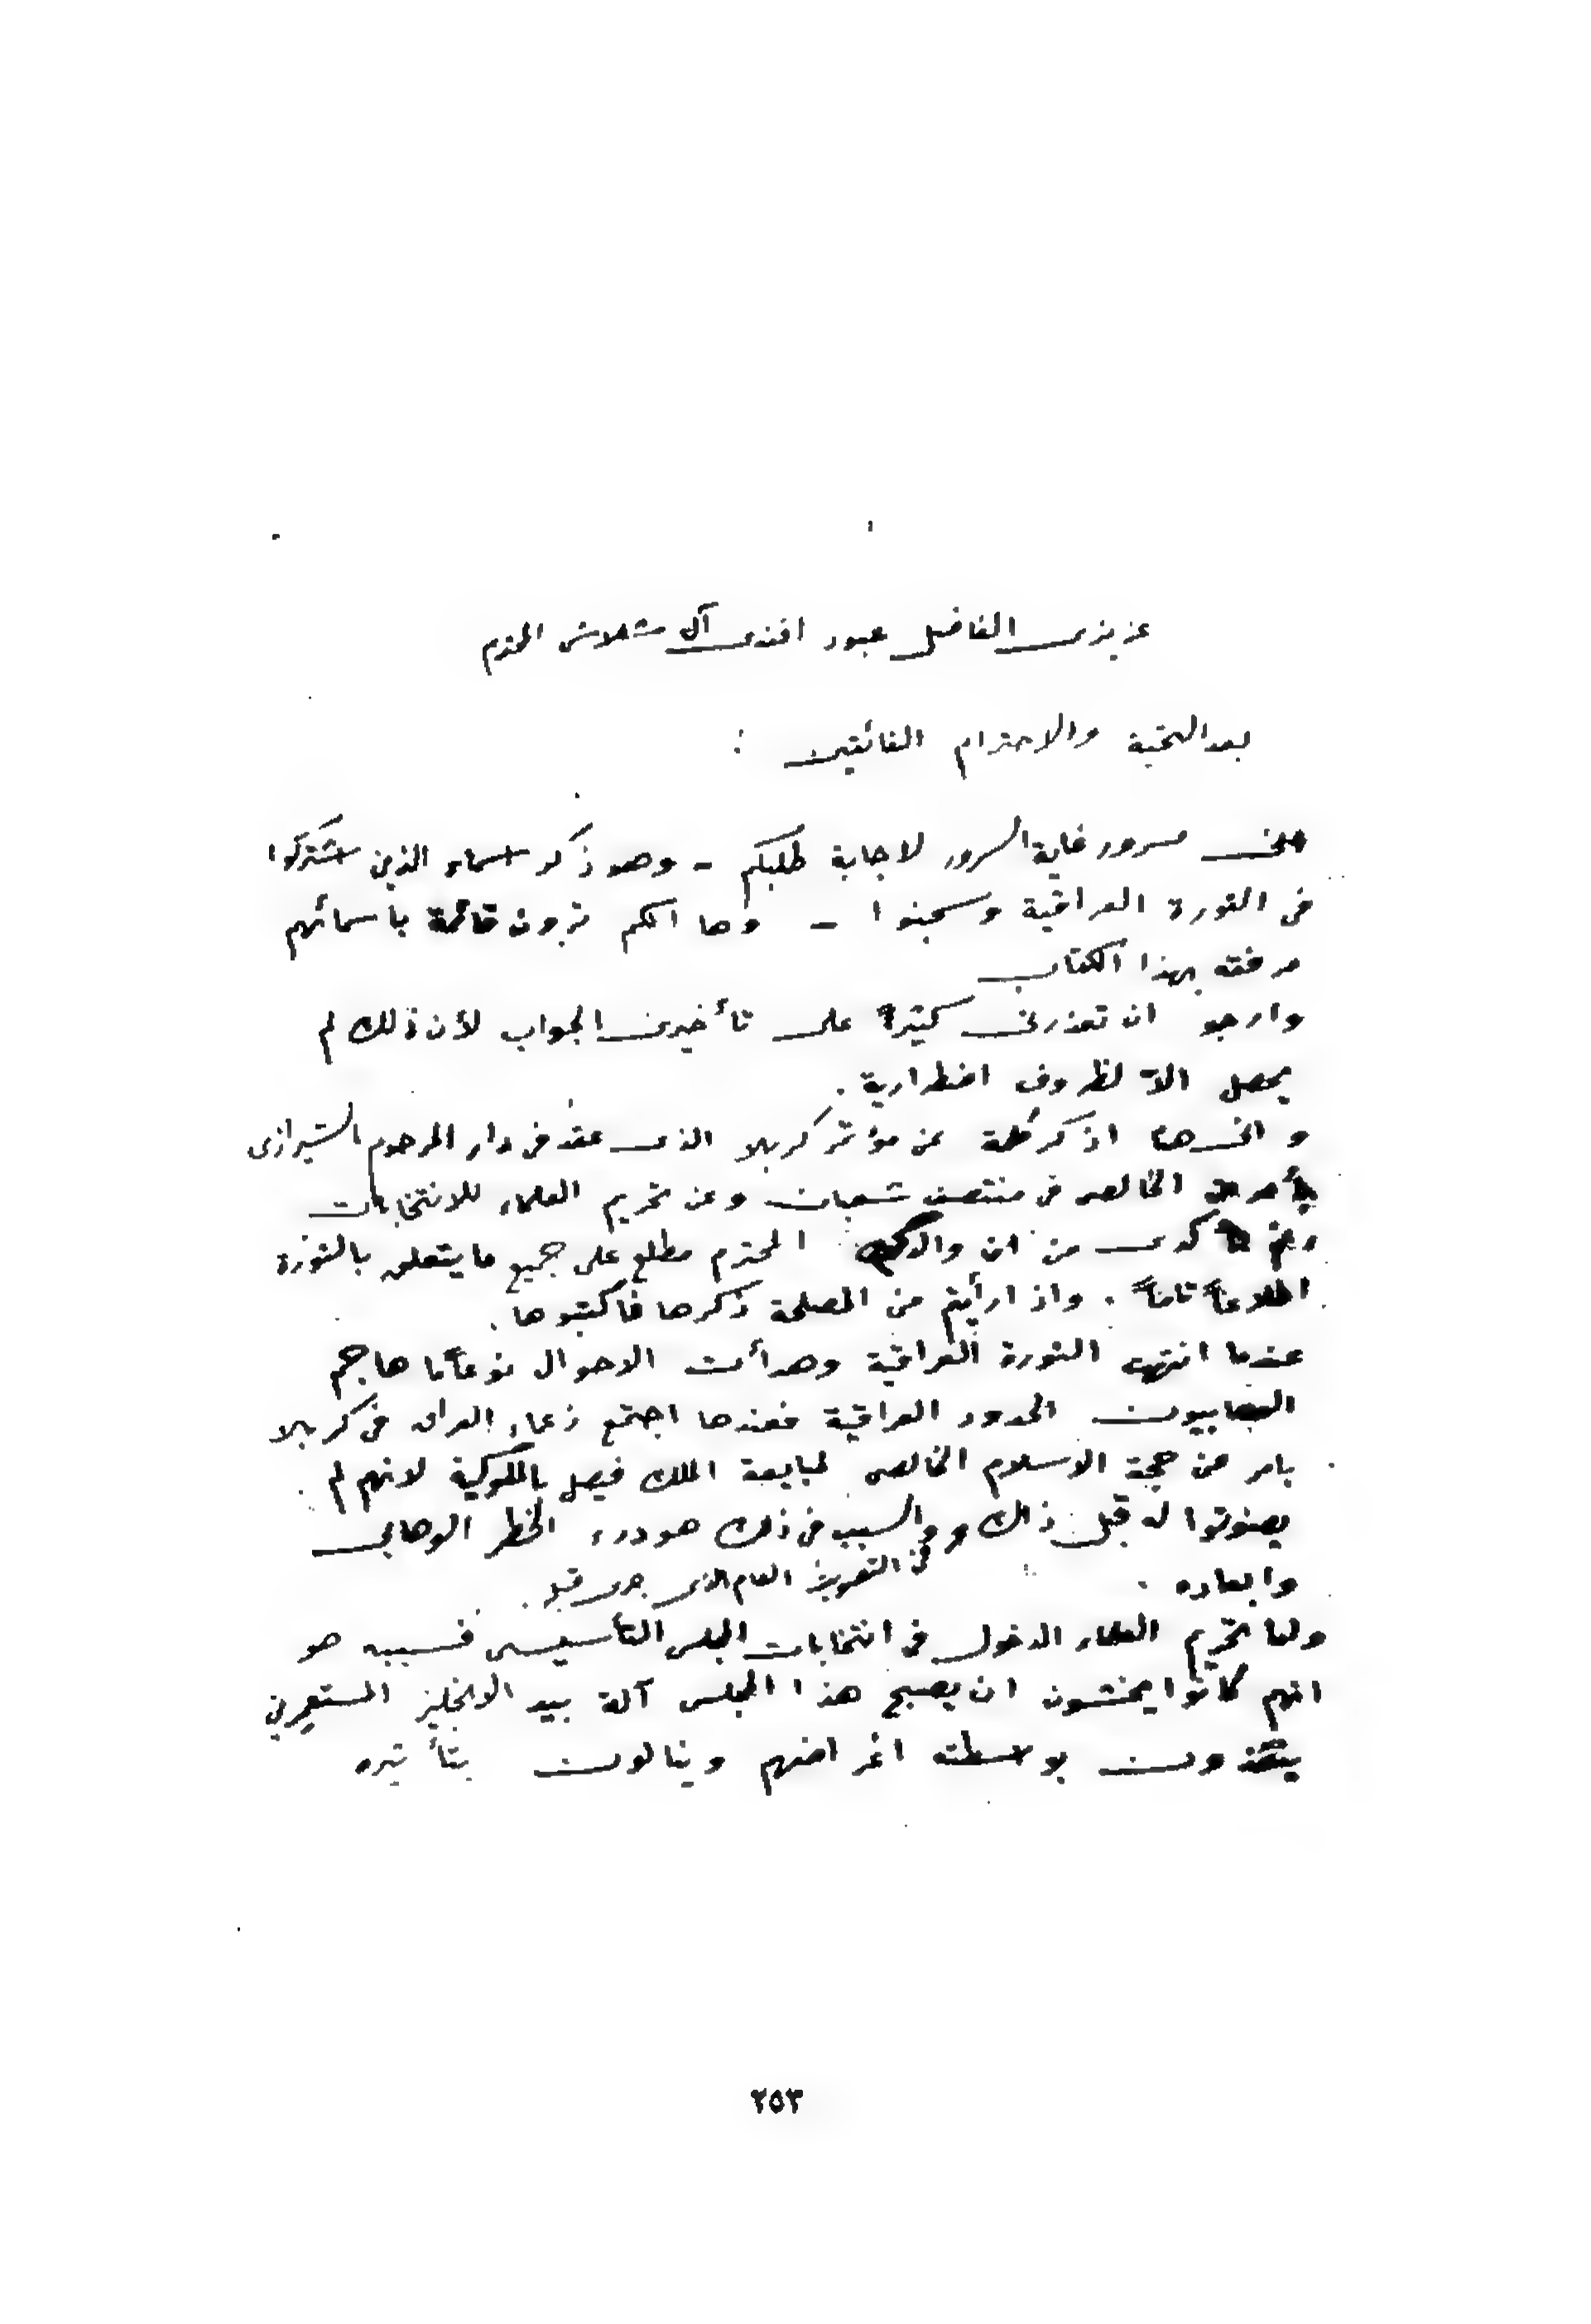 عزيزى الفاضل عبود افندى آل شلاش المحترم
بعد التحية والاحترام الفائقين :
انى مسرور غاية السرور لاجابة طلبكم - وهو ذكر اسماء الذين اشتركوا
فى الثورة العراقية وسجنوا - وها انكم ترون قائمة باسمائهم
مرفقه بهذا الكتاب
وارجو ان تعذرنى كثيراً على تأخيرى الجواب لأن ذلك لم
يحصل الاّ لظروف اضطرارية .
و انى هنا اذكر كلمة عن مؤتمر كربلا الذى عقد فى دار المرحوم الشيرازى
بأمر من الخالصى فى منتصف شعبان وعن تحريم العلماء للانتخابات
رغم تأكدى من ان والدكم المحترم مطلع على جميع ما يتعلق بالثورة
اطلاعاً تاماً . واذا رأيتم من المصلحة ذكرها فاكتبوها .
عندما انتهت الثورة العراقية وهدأت الاحوال نوعاً ما هاجم
الوهابيون الحدود العراقية فعندها اجتمع زعماء العراق فى كربلا
بامر من حجة الاسلام الخالصى لمبايعة الملك فيصل بالملوكية لانهم لم
يصوتوا له قبل ذاك و والسبب فى ذلك هو درء الخطر الوهابى
فى التصويت العام الذى جرى قبل .
وابعاده .
ولما تحريم العلماء الدخول فى انتخابات المجلس التأسيسى فسببه هو
انهم كانوا يخشون ان يصبح هذا المجلس آلة بيد الانجليز المستعمرين
ينفذون بواسطته اغراضهم وينالون بتأثيره
٢٥٣